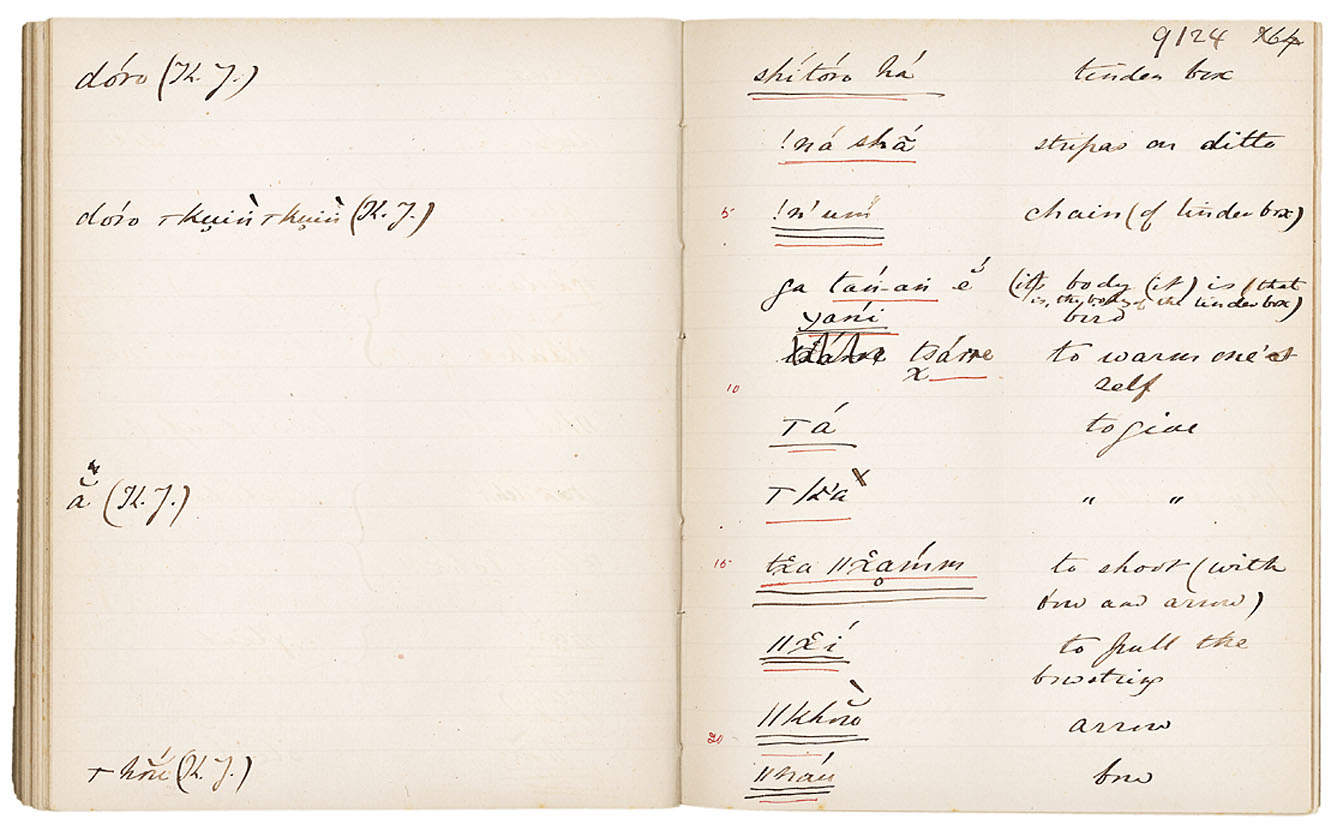 dóro (K. J.)
dóro ⊤kui̯ǹ ⊤kui̯ǹ (K. J.)
ằ (K. J.)
⊤hṍŭ (K. J.)
9124
shítóro há tinder box
!ná shã́ stripes on ditto
5 !n'um chain (of tinder box)
ga tań-an ĕ́ (its body (it) is (that
is, the body of the tinder box)
yańi bird
tsárre to warm one's
x
10 self
⊤á to give
⊤k'a x " "
15 tx̄a ||x̄aḿm to shoot (with
bow and arrow)
||x̄í to pull the
bowstring
||khŏ̀ arrow
20
||háŭ bow